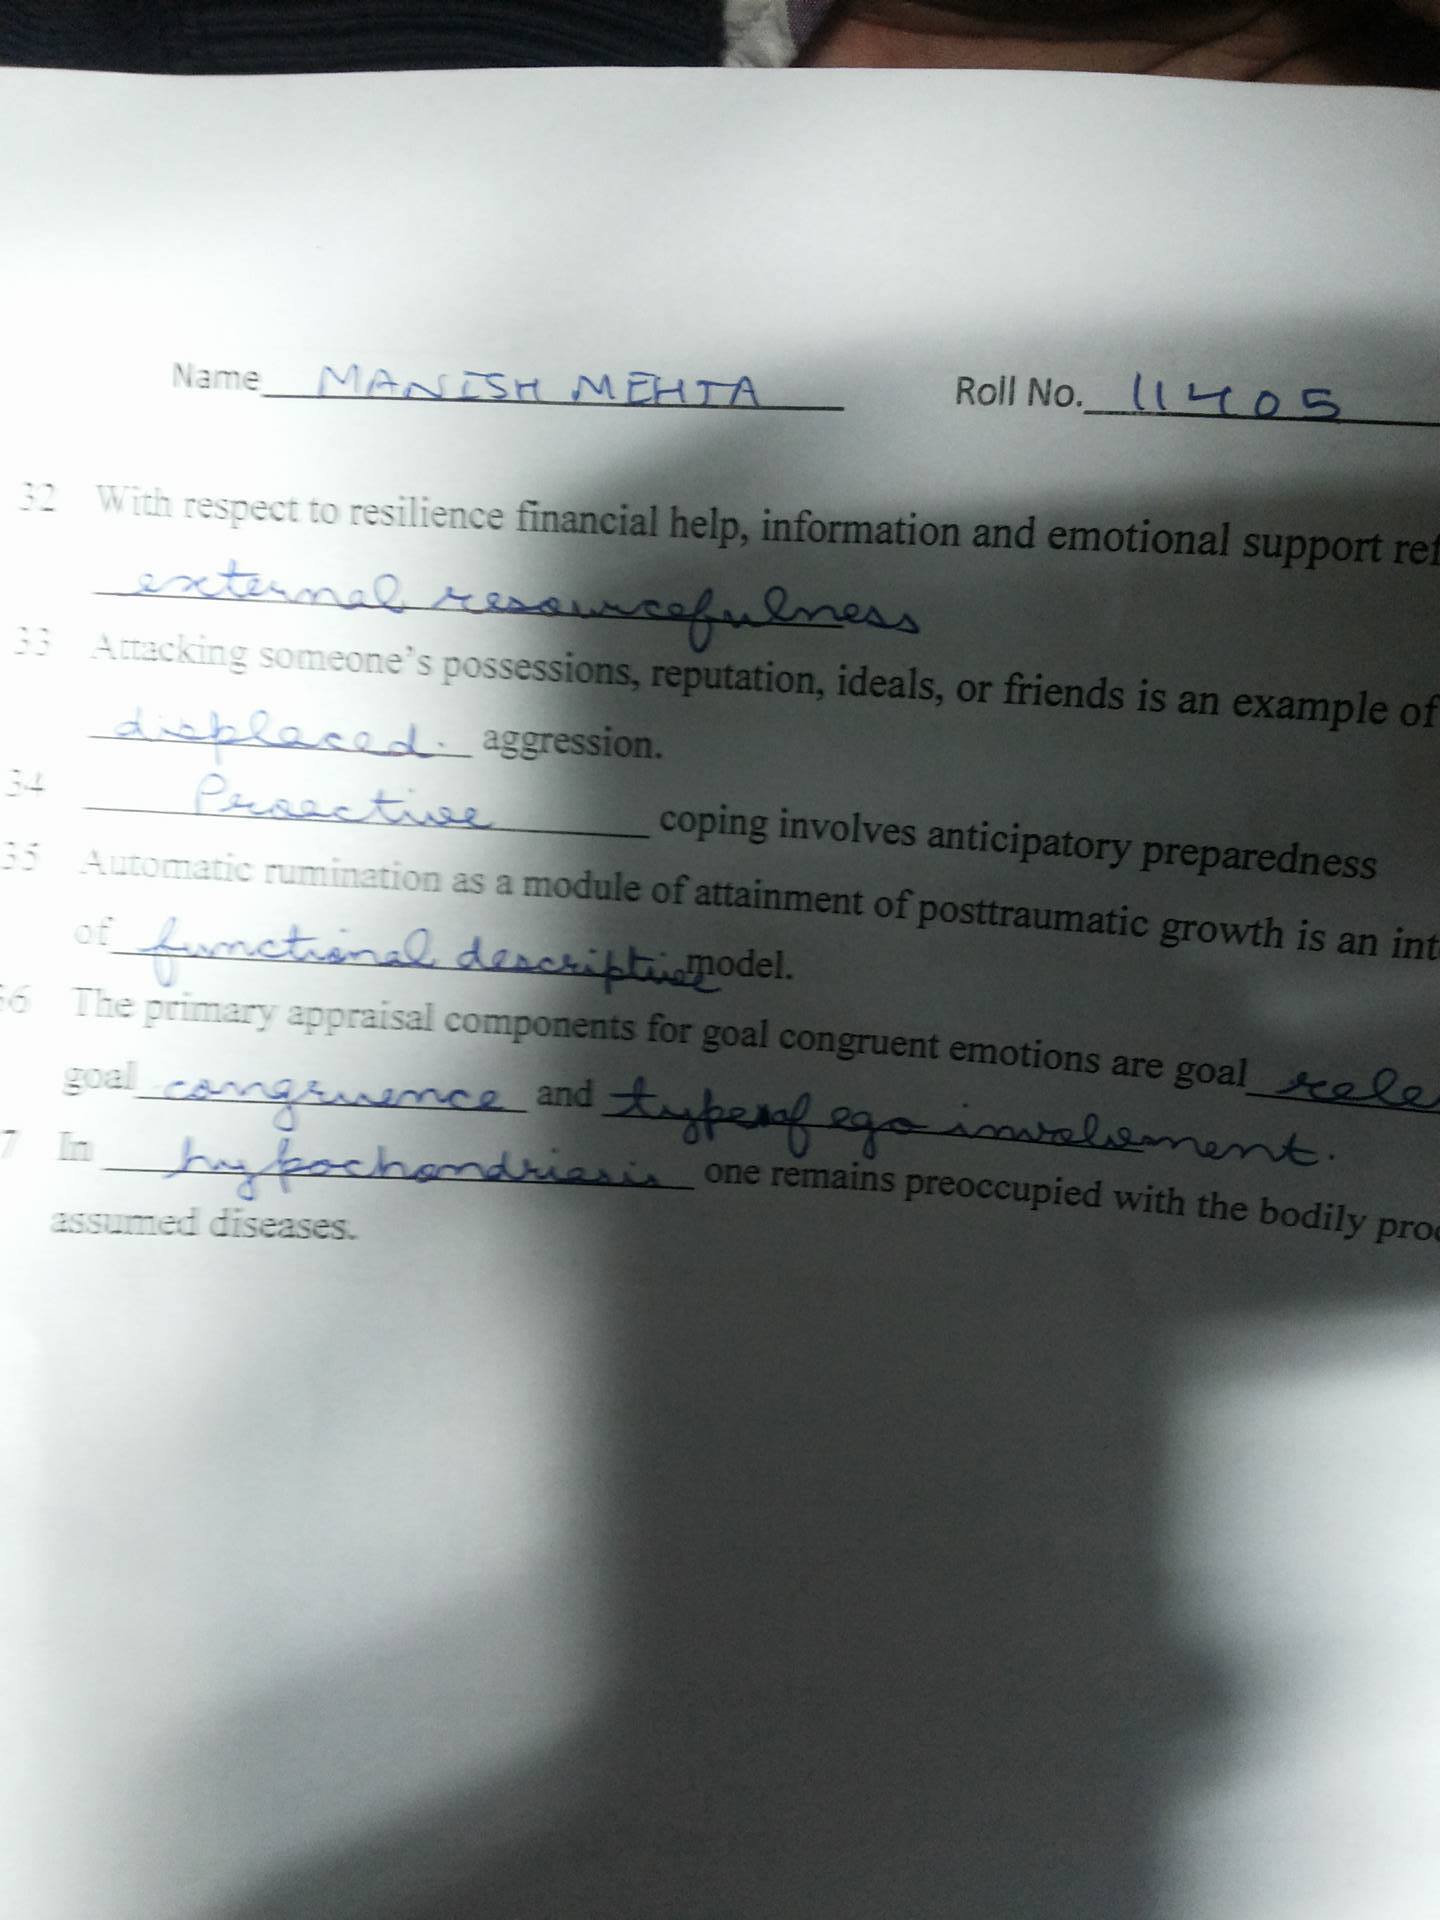 Name MANISH MEHTA Roll No. 11405
32 With respect to resilience financial help, information and emotional support ref
external resourcefulness
33 Attacking someone's possessions, reputation, ideals, or friends is an example of
displaced. aggression.
34 Proactive coping involves anticipatory preparedness
35 Automatic rumination as a module of attainment of posttraumatic growth is an int
of functional descriptive model.
36 The primary appraisal components for goal congruent emotions are goal rele
goal congruence and type of ego involvement.
7 In hypochondriasis one remains preoccupied with the bodily pro
assumed diseases.